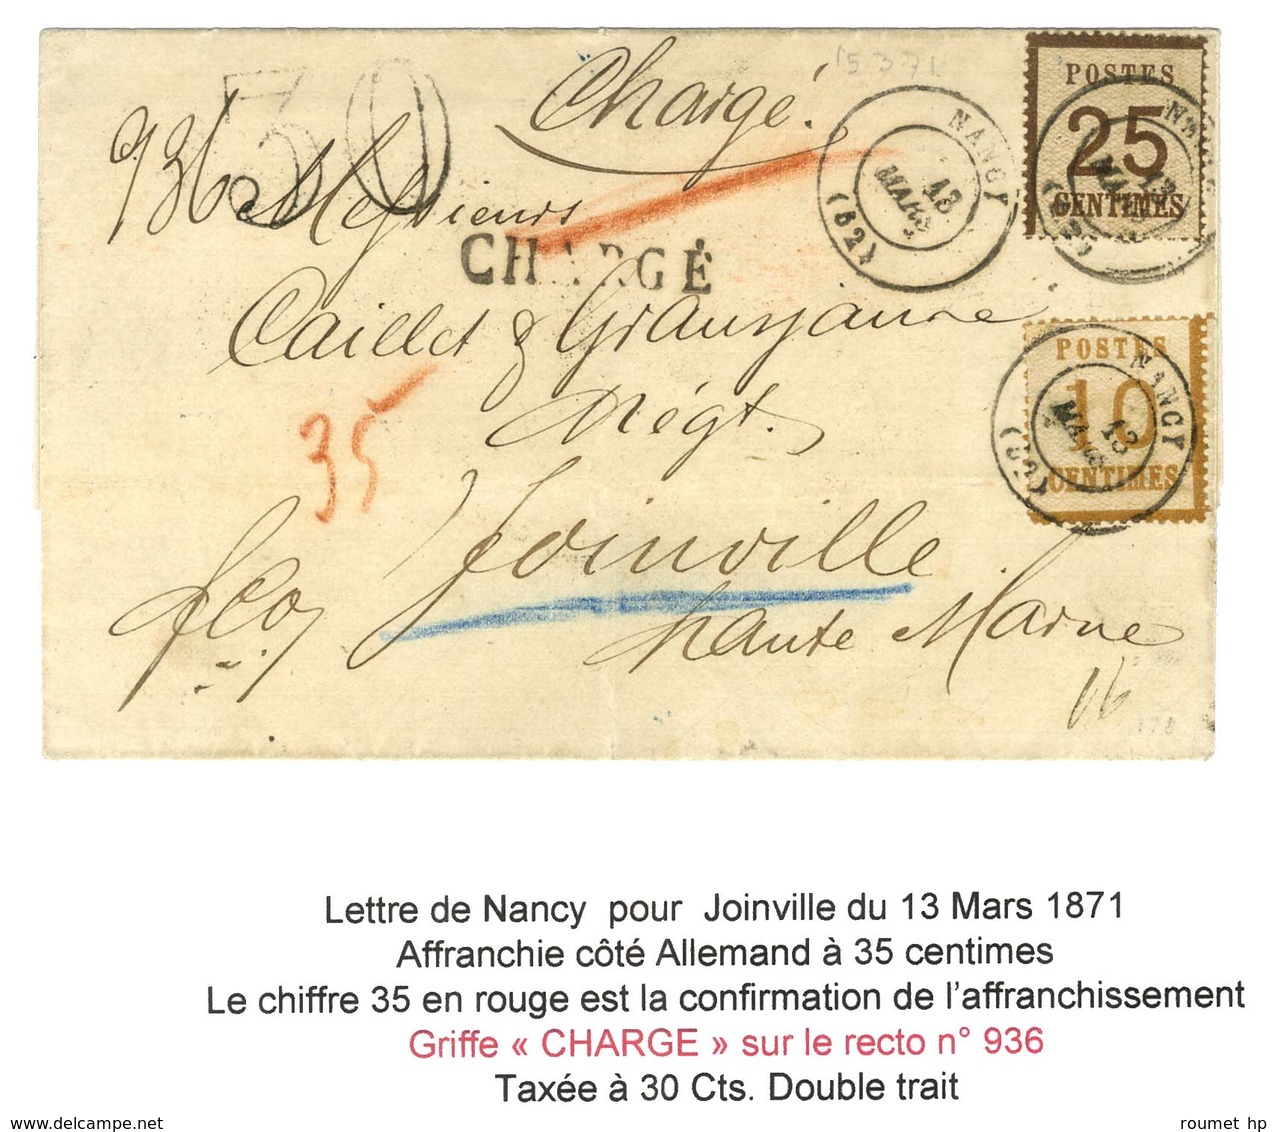 15371
Chargé.
30
936
Messieurs
CHARGÉ
NANCY
13
MARS
(52)
POSTES
25
CENTIMES
NANCY
13
MARS
(52)
Caillet & Grausjanne
Négt.
35
POSTES
10
CENTIMES
NANCY
13
MARS
(52)
fco, Joinville
Haute Marne
Lettre de Nancy pour Joinville du 13 Mars 1871
Affranchie côté Allemand à 35 centimes
Le chiffre 35 en rouge est la confirmation de l'affranchissement
Griffe « CHARGE » sur le recto n° 936
Taxée à 30 Cts. Double trait
www.delcampe.net
roumet hp